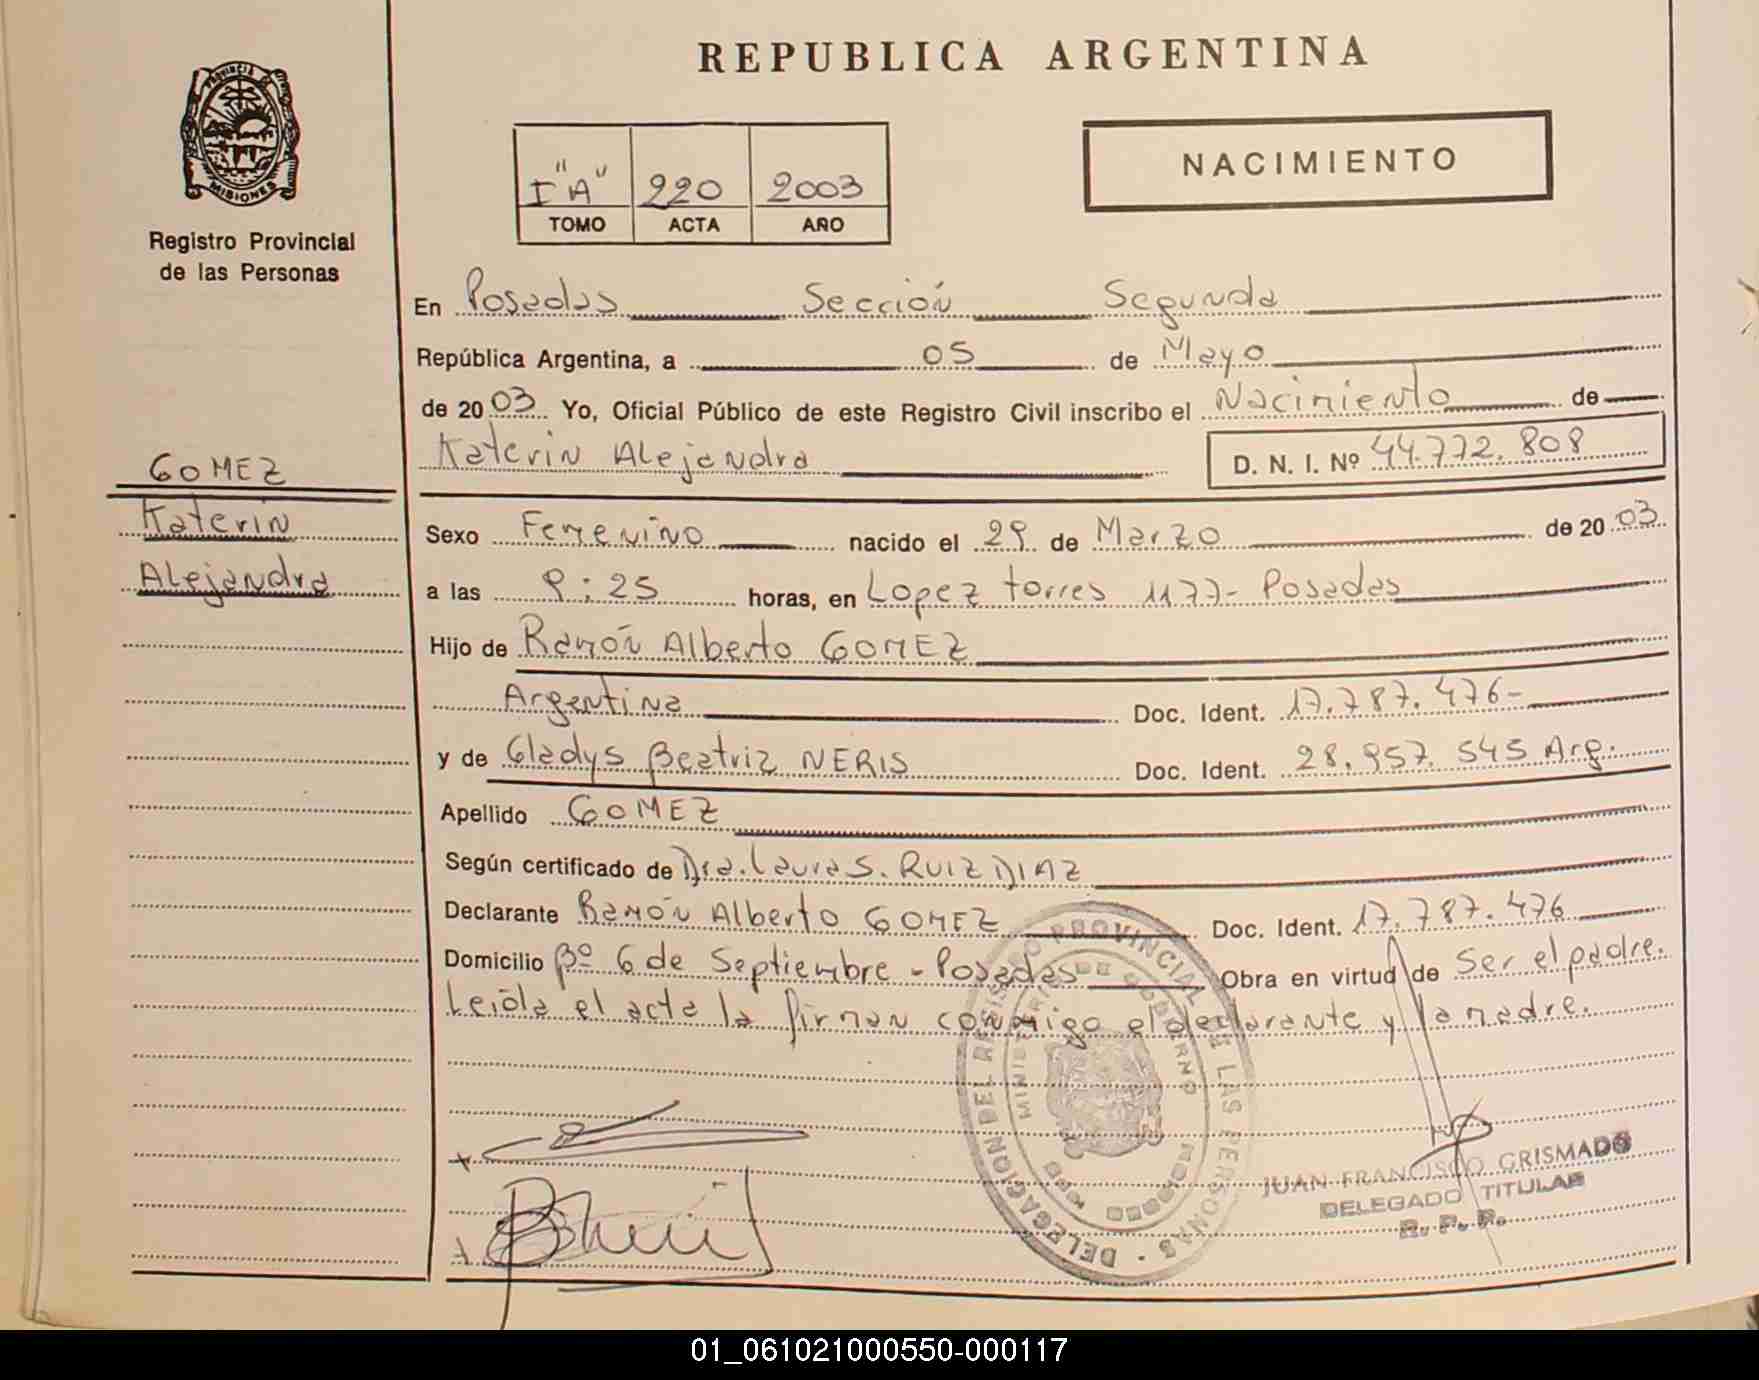 REPUBLICA ARGENTINA
PROVINCIA DE
MISIONES
Registro Provincial
de las Personas
I "A" 220 2003
TOMO ACTA AÑO
NACIMIENTO
En Posadas Sección Segunda
República Argentina, a 05 de Mayo
de 2003 Yo, Oficial Público de este Registro Civil inscribo el Nacimiento de
Katerin Alejandra D. N. I. Nº 44.772.808
GOMEZ
Katerin
Alejandra
Sexo Femenino nacido el 29 de Marzo de 2003
a las 9:25 horas, en Lopez torres 1177- Posadas
Hijo de Ramón Alberto GOMEZ
Argentina Doc. Ident. 17.787.476-
y de Gladys Beatriz NERIS Doc. Ident. 28.957.545 Arg.
Apellido GOMEZ
Según certificado de Dra. Laura S. RUIZ DIAZ
Declarante Ramón Alberto GOMEZ Doc. Ident. 17.787.476
Domicilio Bº 6 de Septiembre - Posadas Obra en virtud de Ser el padre.
Leída el acta la firman conmigo el declarante y la madre.
DELEGACION DEL REGISTRO PROVINCIAL DE LAS PERSONAS
MINISTERIO DE GOBIERNO
MISIONES
JUAN FRANCISCO GRISMADO
DELEGADO TITULAR
R. P. P.
01_061021000550-000117